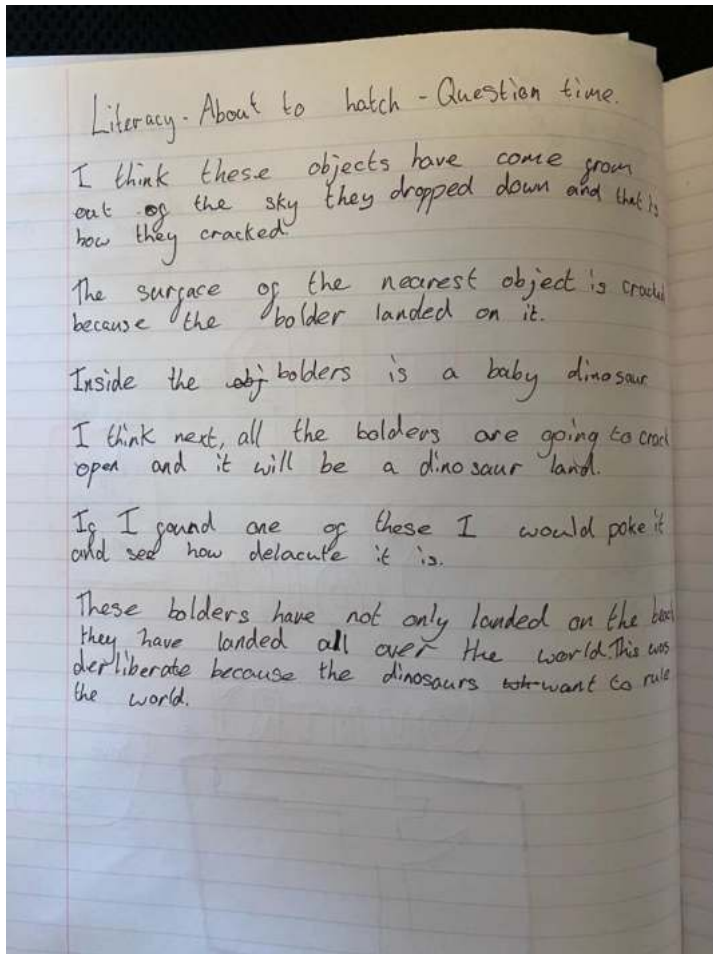 Literacy - About to hatch - Question time.
I think these objects have come from
out of the sky they dropped down and that is
how they cracked.
The surface of the nearest object is cracked
because the bolder landed on it.
Inside the obj bolders is a baby dinosaur
I think next, all the bolders are going to crack
open and it will be a dinosaur land.
If I found one of these I would poke it
and see how delacute it is.
These bolders have not only landed on the beach
they have landed all over the world. This was
derliberate because the dinosaurs want to rule
the world.